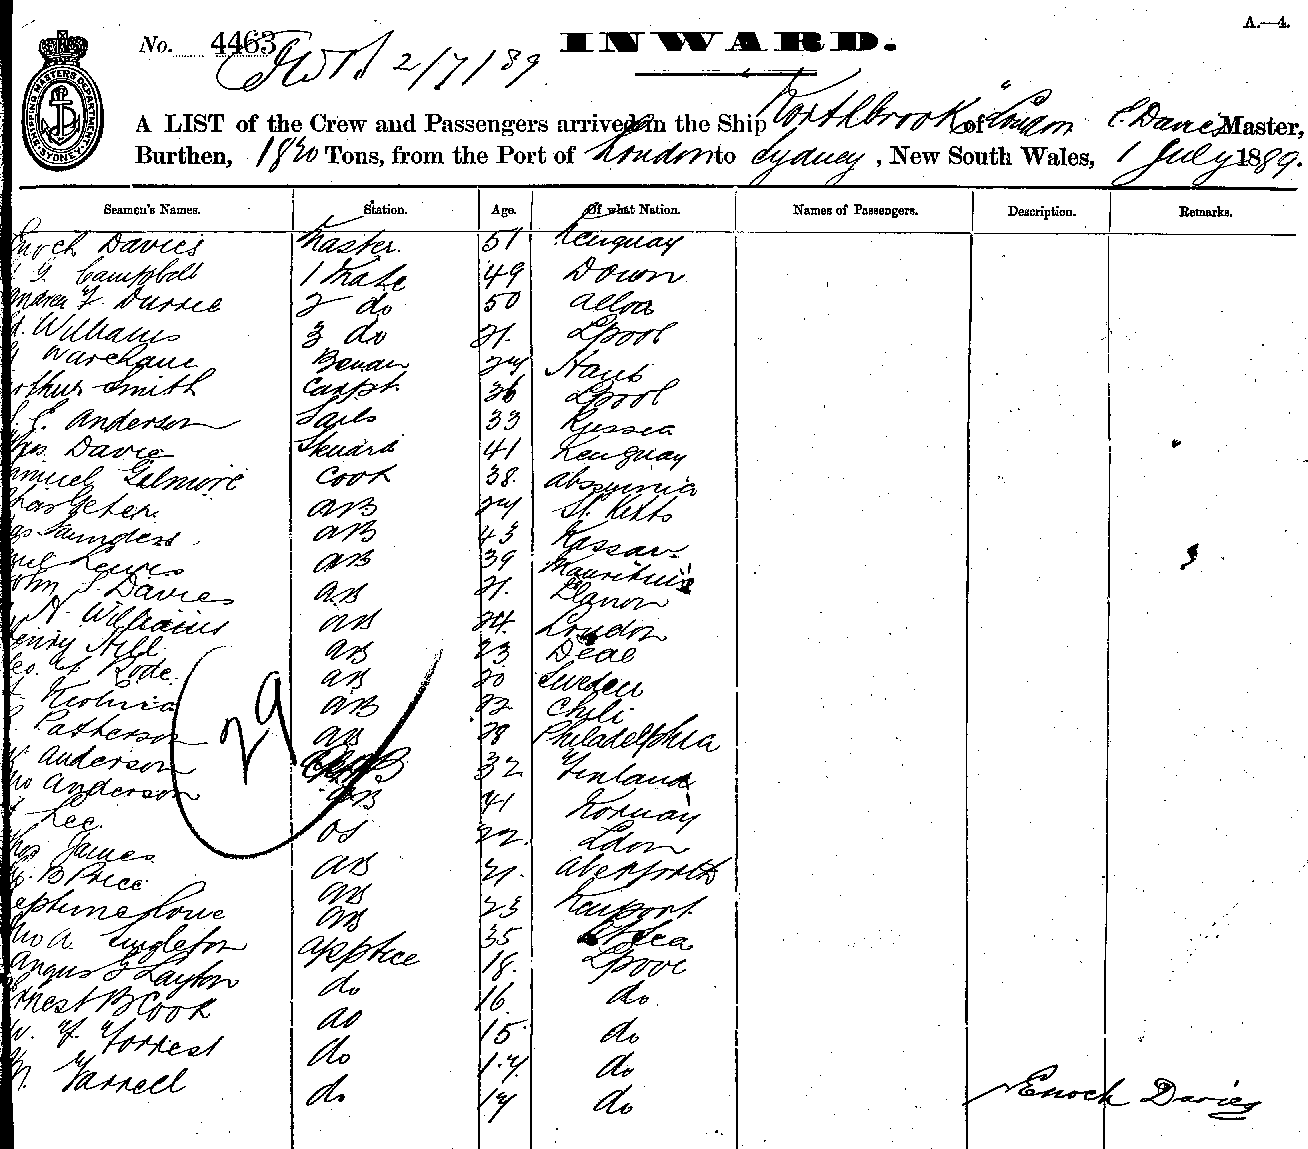 A.—4.
No. 4463 INWARD.
2/7/89
SHIPPING MASTERS DEPARTMENT SYDNEY
A LIST of the Crew and Passengers arrived in the Ship "Northbrook" of London E Davies Master,
Burthen, 1820 Tons, from the Port of London to Sydney, New South Wales, 1 July 1889.
Seamen's Names. Station. Age. Of what Nation. Names of Passengers. Description. Remarks.
Enoch Davies Master. 51 Newquay
G. Campbell 1 Mate 49 Down
Andrew F. Durrie 2 do 50 Alloa
Williams 3 do 21. Lpool
Warehane Bosun 27 Hants
Arthur Smith Carpt. 36 Lpool
E. Anderson Sails 33 Russia
Davies Steward 41 Newquay
Samuel Gilmore Cook 38.
Chas Peter. AB 24 St. Kitts
Saunders AB 43 Nassau
Lewis AB 39 Mauritius
John S Davies AB 21. Llanon
N. Williams AB 24. London
Henry Hill AB 23 Deal
Geo. F. Rode. AB 20 Sweden
AB 22 Chili
Patterson AB 28 Philadelphia
Anderson AB 32 Finland
Jno Anderson AB 41 Norway
Lee OS 22. Ldon
Thos James AB 21.
B Price AB 23 Newport.
Neptune AB 35 At Sea
Jno A. Singleton Apptice 18. Lpool
Angus G Layton do 16. do
Ernest B Cook do 15. do
W. F. Forrest do 17 do
Farrell do 17 do
29
Enoch Davies